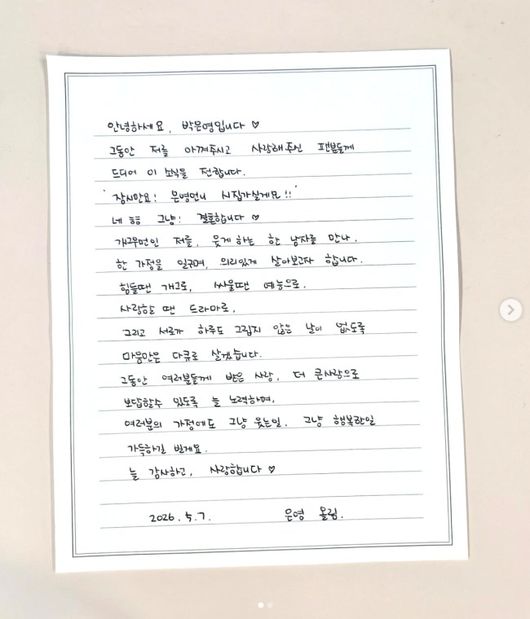 안녕하세요, 박은영입니다 ♡
그동안 저를 아껴주시고 사랑해주신 팬분들께
드디어 이 소식을 전합니다.
'잠시만요! 은영언니 시집가실게요!!'
네 ㅎㅎ 그냥! 결혼합니다 ♡
개그우먼인 저를, 웃게 하는 한 남자를 만나,
한 가정을 일구며, 의리있게 살아보고자 합니다.
힘들땐 개그로, 싸울땐 예능으로,
사랑할 땐 드라마로,
그리고 서로가 하루도 그립지 않은 날이 없도록
마음만은 다큐로 살겠습니다.
그동안 여러분들께 받은 사랑, 더 큰사랑으로
보답할수 있도록 늘 노력하며,
여러분의 가정에도 그냥 웃는일, 그냥 행복한일
가득하길 빌게요.
늘 감사하고, 사랑합니다 ♡
2026. 5. 7. 은영 올림.